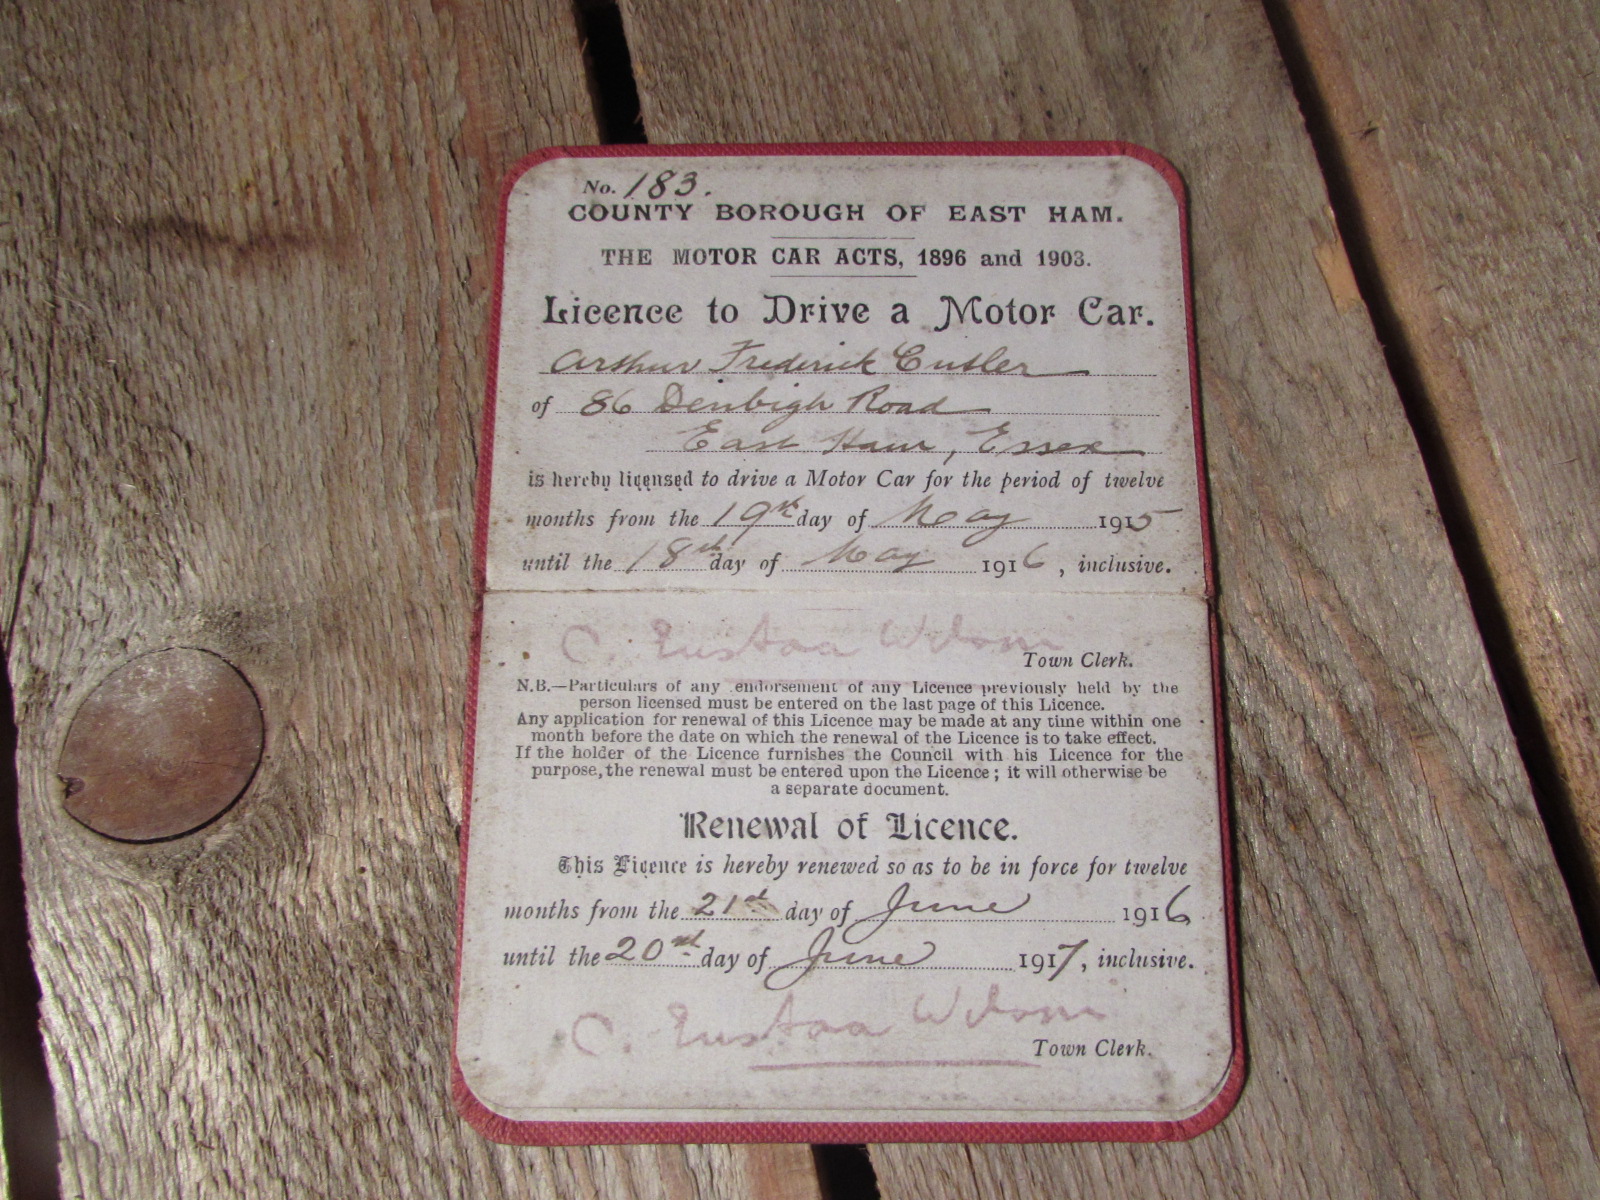 No. 183.
COUNTY BOROUGH OF EAST HAM.
THE MOTOR CAR ACTS, 1896 and 1903.
Licence to Drive a Motor Car.
Arthur Frederick Cutler
of 86 Denbigh Road
East Ham, Essex
is hereby licensed to drive a Motor Car for the period of twelve
months from the 19th day of May 1915
until the 18th day of May 1916, inclusive.
C. Eustace Wilson
Town Clerk.
N.B.—Particulars of any endorsement of any Licence previously held by the
person licensed must be entered on the last page of this Licence.
Any application for renewal of this Licence may be made at any time within one
month before the date on which the renewal of the Licence is to take effect.
If the holder of the Licence furnishes the Council with his Licence for the
purpose, the renewal must be entered upon the Licence; it will otherwise be
a separate document.
Renewal of Licence.
This Licence is hereby renewed so as to be in force for twelve
months from the 21st day of June 1916
until the 20th day of June 1917, inclusive.
C. Eustace Wilson
Town Clerk.